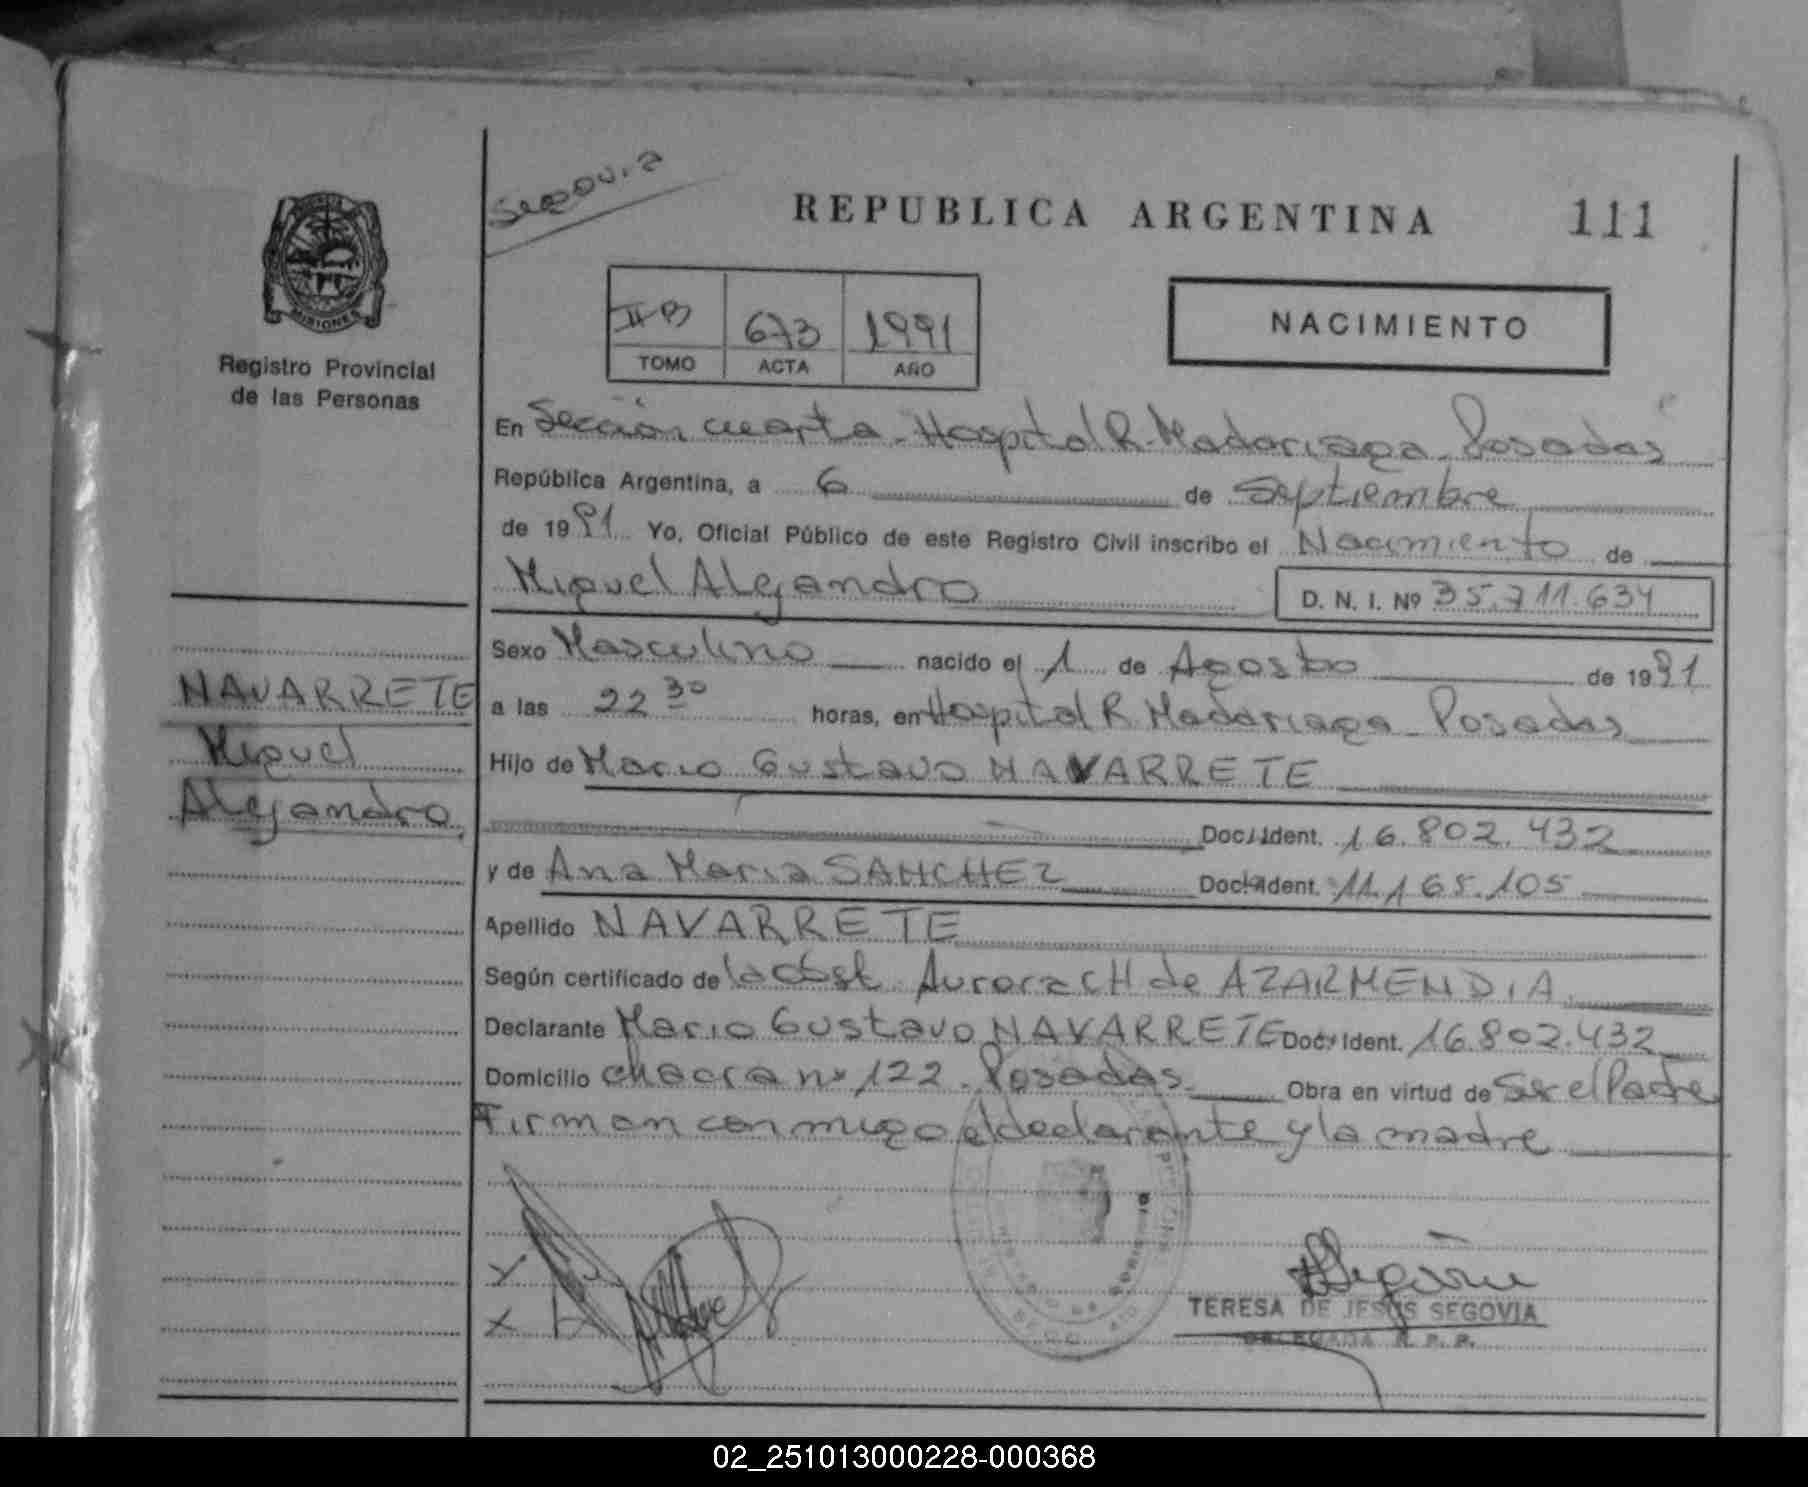 Segovia
REPUBLICA ARGENTINA 111
MISIONES
Registro Provincial
de las Personas
II B 673 1991
TOMO ACTA AÑO
NACIMIENTO
En Sección cuarta - Hospital R. Madariaga - Posadas
República Argentina, a 6 de Septiembre
de 1991 Yo, Oficial Público de este Registro Civil inscribo el Nacimiento de
Miguel Alejandro D. N. I. Nº 35.711.634
Sexo Masculino nacido el 1 de Agosto de 1991
a las 22 30 horas, en Hospital R. Madariaga - Posadas
Hijo de Mario Gustavo NAVARRETE
Doc. Ident. 16.802.432
y de Ana Maria SANCHEZ Doc. Ident. 11.165.105
Apellido NAVARRETE
Según certificado de la Obst. Aurora CH de AZARMENDIA
Declarante Mario Gustavo NAVARRETE Doc. Ident. 16.802.432
Domicilio chacra nº 122 - Posadas Obra en virtud de Ser el Padre
Firman conmigo el declarante y la madre
NAVARRETE
Miguel
Alejandro.
TERESA DE JESUS SEGOVIA
DELEGADA R. P. P.
02_251013000228-000368